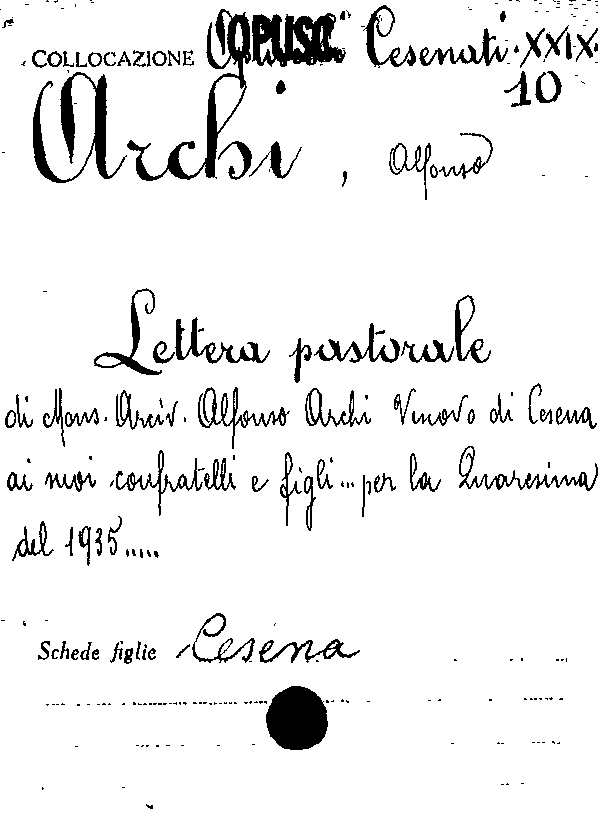 COLLOCAZIONE OPUSC. Cesenati. XXIX.
10
Archi, Alfonso
Lettera pastorale
di Mons. Arciv. Alfonso Archi Vescovo di Cesena
ai suoi confratelli e figli... per la Quaresima
del 1935.....
Schede figlie Cesena